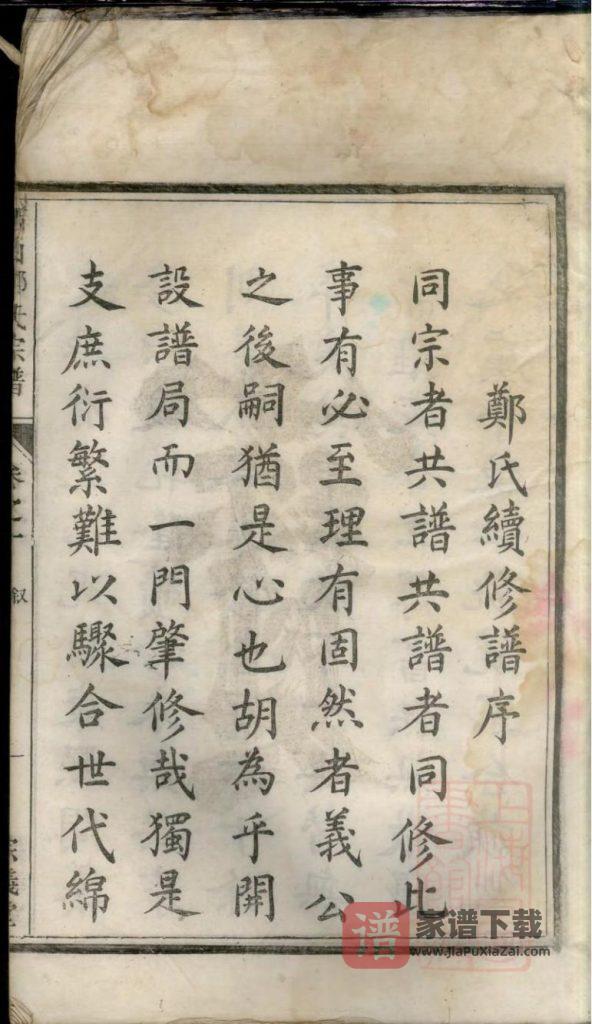 鄭氏續修譜序
同宗者共譜共譜者同修此
事有必至理有固然者義公
之後嗣猶是心也胡為乎開
設譜局而一門肇修哉獨是
支庶衍繁難以驟合世代綿
鄭氏宗譜
卷之一
叙
一
谱
家谱下载
www.JiaPuXiaZai.com